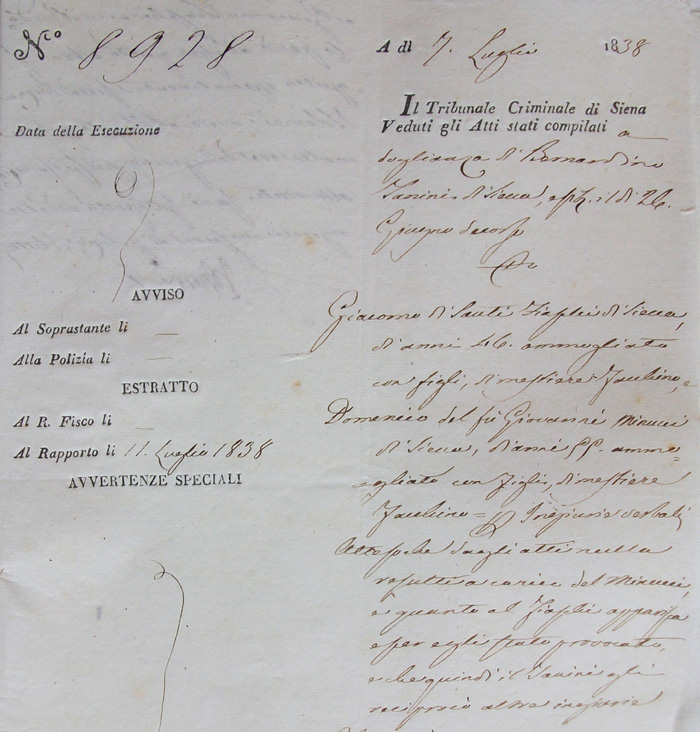 N.° 8928
A dì 7. Luglio 1838
Il Tribunale Criminale di Siena
Veduti gli Atti stati compilati a
Data della Esecuzione
doglianza di Bernardino
Tanini di Siena, esp.ta il dì 26.
Giugno decorso
AVVISO
Al Soprastante li —
Alla Polizia li —
ESTRATTO
Al R. Fisco li —
Al Rapporto li 11. Luglio 1838
AVVERTENZE SPECIALI
Co
Giacomo di Santi di Siena,
di anni 46. ammogliato
con figli, di mestiere Facchino, e
Domenico del fu Giovanni Minucci
di Siena, d'anni 55. ammo=
=gliato con figli, di mestiere
Facchino = Ingiurie verbali
Attesoché dagli atti nulla
resulti a carico del Minucci,
e quanto al apparisca
esser egli stato provocato,
e che quindi il Tanini gli
reciprocò altre ingiurie